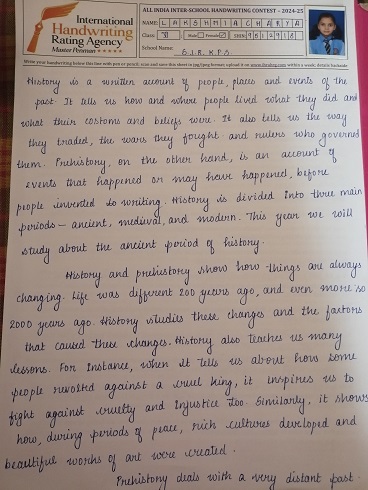 International
Handwriting
Rating Agency
Master Penman
ALL INDIA INTER-SCHOOL HANDWRITING CONTEST - 2024-25
NAME: LAKSHMI ACHARYA
Class: VI
School Name: B.J.R. K.P.S
History is a written account of people, places and events of the
past. It tells us how and where people lived what they did and
what their costoms and beliefs were. It also tells us the way
they traded, the wars they fought and rulers who governed
them. Prehistory, on the other hand, is an account of
events that happened or may have happened, before
people invented to writing. History is divided into three main
periods — ancient, medival, and modern. This year we will
study about the ancient period of history.
History and prehistory show how things are always
changing. Life was different 200 years ago, and even more so
2000 years ago. History studies these changes and the factors
that caused these changes. History also teaches us many
lessons. For instance, when it tells us about how some
people revolted against a cruel king, it inspires us to
fight against cruelty and injustice too. Similarly, it shows
how, during periods of peace, rich cultures developed and
beautiful works of art were created.
Prehistory deals with a very distant past.